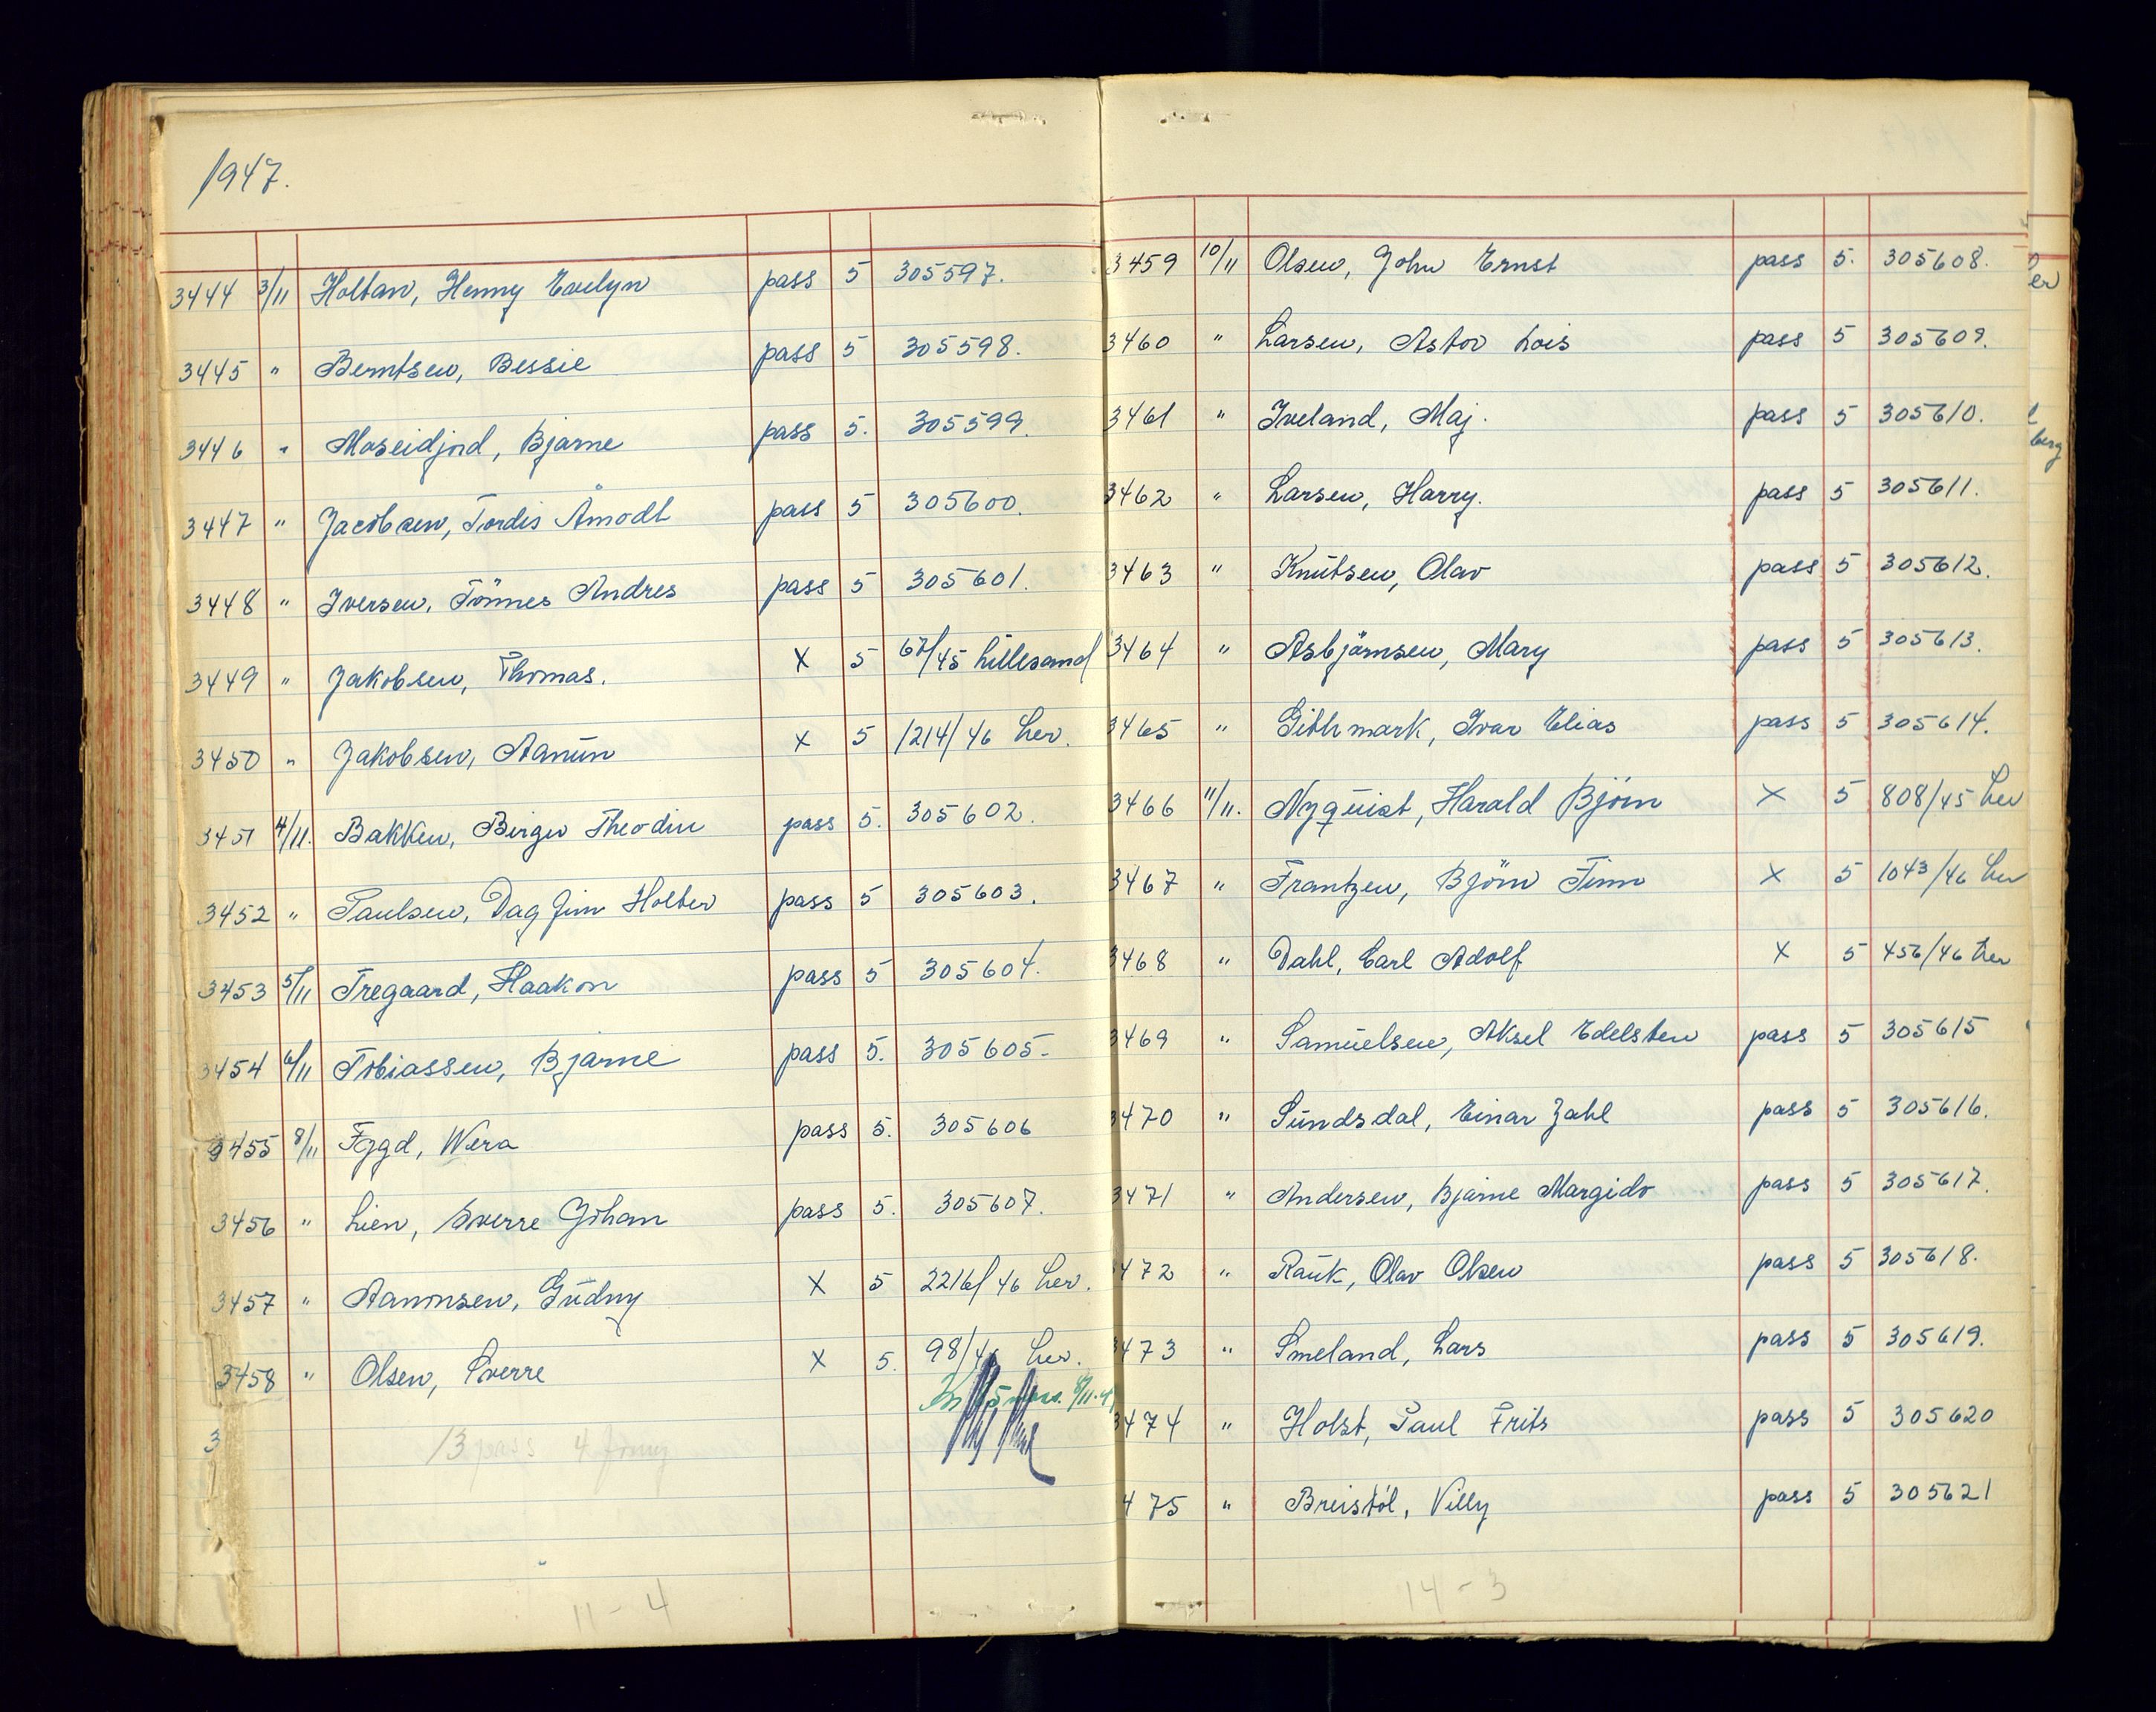 1947.
3444 3/11 Holtan, Henny Evelyn pass 5 305597.
3445 " Berntsen, Bessie pass 5 305598.
3446 " Moseidjord, Bjarne pass 5. 305599.
3447 " Jacobsen, Tordis Åmodt pass 5 305600.
3448 " Iversen, Tönnes Andres pass 5 305601.
3449 " Jakobsen, Thomas. X 5 67/45 Lillesand
3450 " Jakobsen, Aanun X 5 1214/46 her.
3451 4/11. Bakken, Birger Theodin pass 5. 305602.
3452 " Paulsen, Dag Finn Holter pass 5 305603.
3453 5/11 Tregaard, Haakon pass 5 305604.
3454 6/11 Tobiassen, Bjarne pass 5. 305605.
3455 8/11 Fygd, Wera pass 5. 305606
3456 " Lien, Sverre Johan pass 5. 305607.
3457 " Aanonsen, Gudny X 5 2216/46 her.
3458 " Olsen, Sverre X 5. 98/46 her.
8/11.47
3 13 pass 4 forny
11-4
3459 10/11 Olsen, John Ernst pass 5. 305608.
3460 " Larsen, Astor Lois pass 5 305609.
3461 " Iveland, Maj. pass 5 305610.
3462 " Larsen, Harry. pass 5 305611.
3463 " Knutsen, Olav pass 5 305612.
3464 " Asbjörnsen, Mary pass 5 305613.
3465 " Githmark, Ivar Elias pass 5 305614.
3466 11/11. Nyquist, Harald Björn X 5 808/45 her
3467 " Frantzen, Björn Finn X 5 1043/46 her
3468 " Dahl, Carl Adolf X 5 456/46 her
3469 " Samuelsen, Aksel Edelsten pass 5 305615
3470 " Sundsdal, Einar Zahl pass 5 305616.
3471 " Andersen, Bjarne Margido pass 5 305617.
3472 " Rauk, Olav Olsen pass 5 305618.
3473 " Smeland, Lars pass 5 305619.
3474 " Holst, Paul Frits pass 5 305620
475 " Breistöl, Villy pass 5 305621
14-3
er
berg